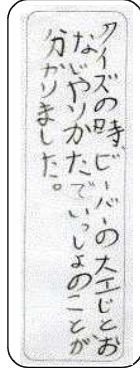 クイズの時、ビーバーの大工じと、お
なじやりかたでいっしょのことが
分かりました。